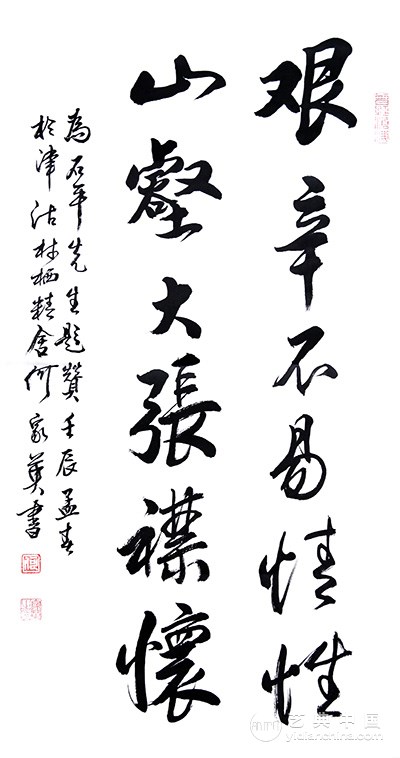 艰辛不易情性
山壑大張襟懷
為石年先生题贊壬辰孟春
於津沽林栖精舍何家英書
艺典中国
yidianchina.com